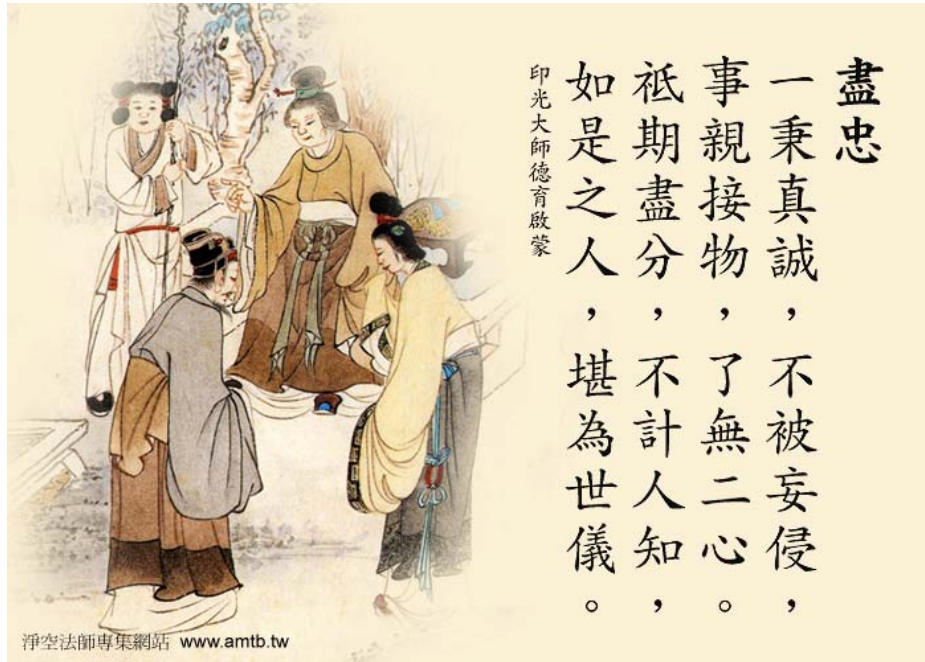 盡忠
一秉真誠，不被妄侵，
事親接物，了無二心。
祇期盡分，不計人知，
如是之人，堪為世儀。
印光大師德育啟蒙
淨空法師專集網站 www.amtb.tw